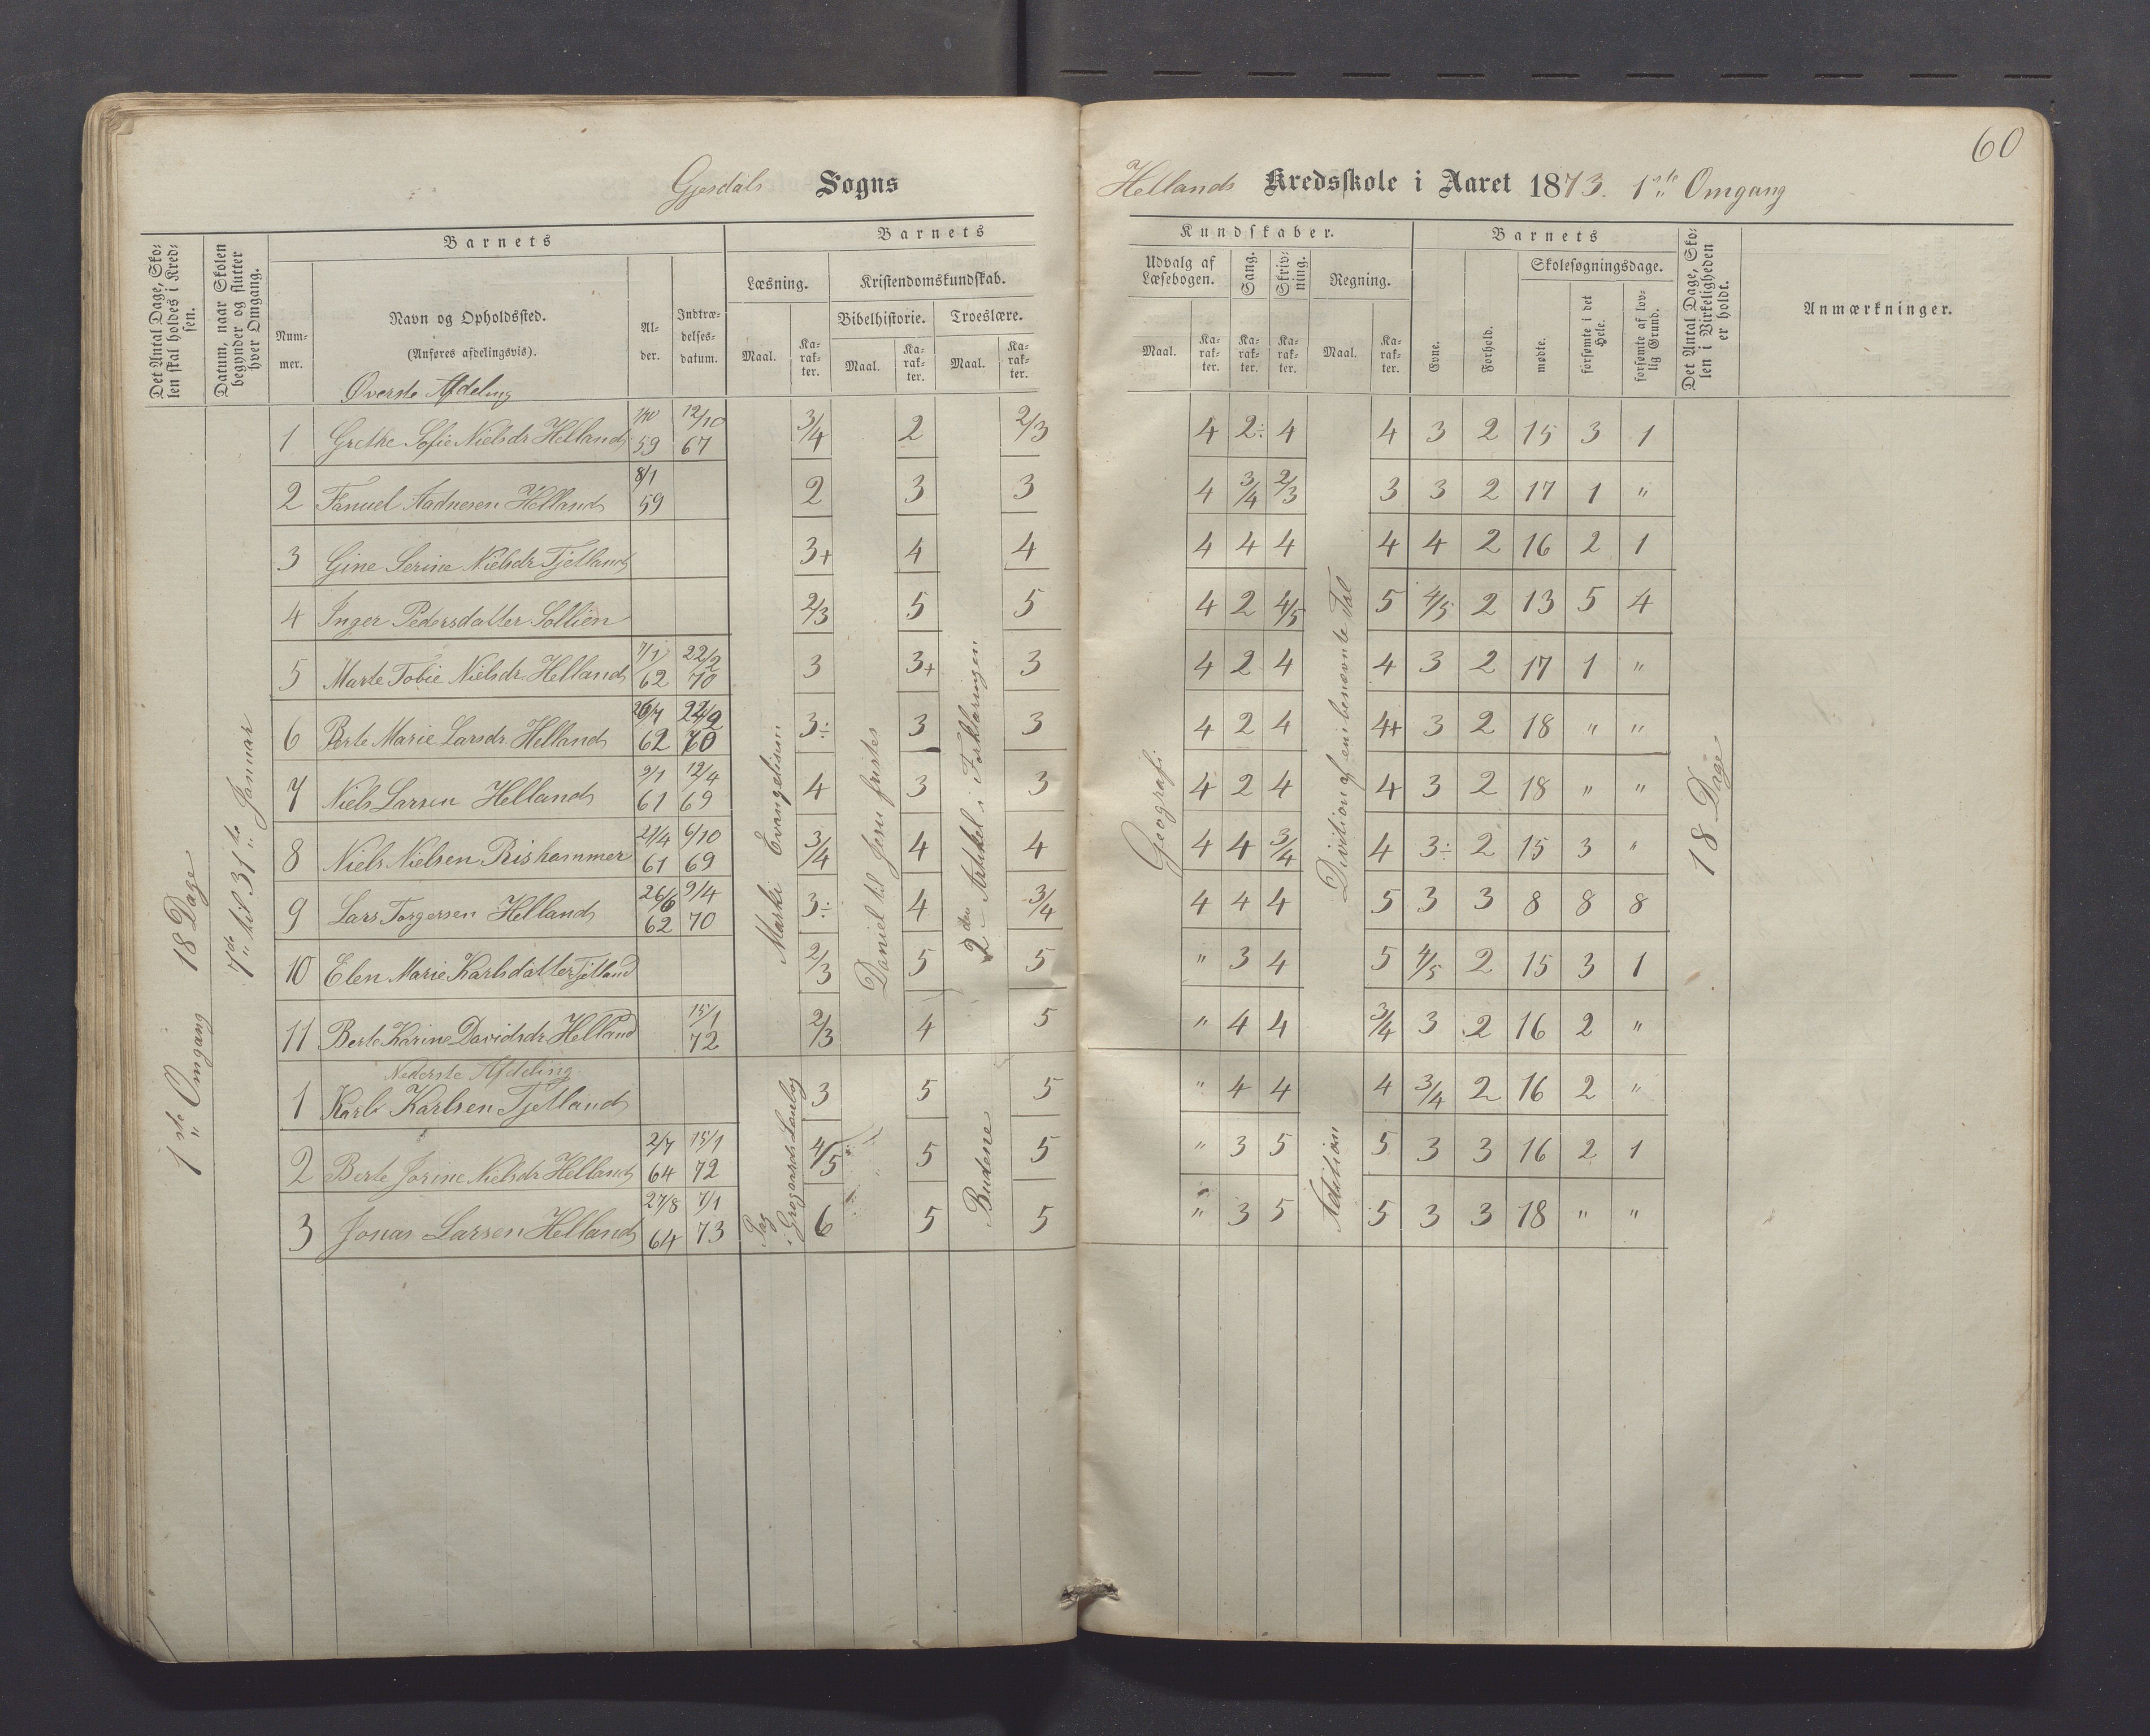 60
Gjesdals Sogns Hellands Kredsskole i Aaret 1873. 1ste Omgang
Det Antal Dage, Skolen skal holdes i Kredsen.
Datum, naar Skolen begynder og slutter hver Omgang.
Barnets
Nummer.
Navn og Opholdssted.
(Anføres afdelingsvis).
Alder.
Indtrædelsesdatum.
Barnets Kundskaber.
Læsning.
Maal. Karakter.
Kristendomskundskab.
Bibelhistorie. Troeslære.
Maal. Karakter. Maal. Karakter.
Udvalg af Læsebogen.
Maal. Karakter.
Sang. Karakter.
Skrivning. Karakter.
Regning.
Maal. Karakter.
Barnets
Evne. Forhold.
Skolesøgningsdage.
mødte. forsømte i det Hele. forsømte af lovlig Grund.
Det Antal Dage, Skolen i Virkeligheden er holdt.
Anmærkninger.
1ste Omgang 18 Dage
7de til 31te Januar
Marki Evangelium
Daniel til Jesu fristes
2den Artikel i Forklaringen
Geografi
Division af enbenævnte Tal
18 Dage
Øverste Afdeling
1 Grethe Sofie Nielsdr Helland 59 12/10 67 3/4 2 2/3 4 2÷ 4 4 3 2 15 3 1
2 Fanuel Aadnesen Helland 8/1 59 2 3 3 4 3/4 2/3 3 3 2 17 1 "
3 Gine Serine Nielsdr Tjetland 3+ 4 4 4 4 4 4 4 2 16 2 1
4 Inger Pedersdatter Sollien 2/3 5 5 4 2 4/5 5 4/5 2 13 5 4
5 Marte Tobie Nielsdr Helland 7/1 62 22/2 70 3 3+ 3 4 2 4 4 3 2 17 1 "
6 Berte Marie Larsdr Helland 62 70 3÷ 3 3 4 2 4 4+ 3 2 18 " "
7 Niels Larsen Helland 9/1 61 12/4 69 4 3 3 4 2 4 4 3 2 18 " "
8 Niels Nielsen Rishammer 21/4 61 6/10 69 3/4 4 4 4 4 3/4 4 3÷ 2 15 3 "
9 Lars Torgersen Helland 26/6 62 9/4 70 3÷ 4 3/4 4 4 4 5 3 3 8 8 8
10 Elen Marie Karlsdatter Tjetland 2/3 5 5 " 3 4 5 4/5 2 15 3 1
11 Berte Karine Davidsdr Helland 15/1 72 2/3 4 5 " 4 4 3/4 3 2 16 2 "
Nederste Afdeling
i Grøgaards Læsebog
Budene
Adition
1 Karl Karlsen Tjetland 3 5 5 " 4 4 4 3/4 2 16 2 "
2 Berte Jorine Nielsdr Helland 2/7 64 15/1 72 4/5 " 5 5 " 3 5 5 3 3 16 2 1
3 Jonas Larsen Helland 27/8 64 7/1 73 6 5 5 " 3 5 5 3 3 18 " "